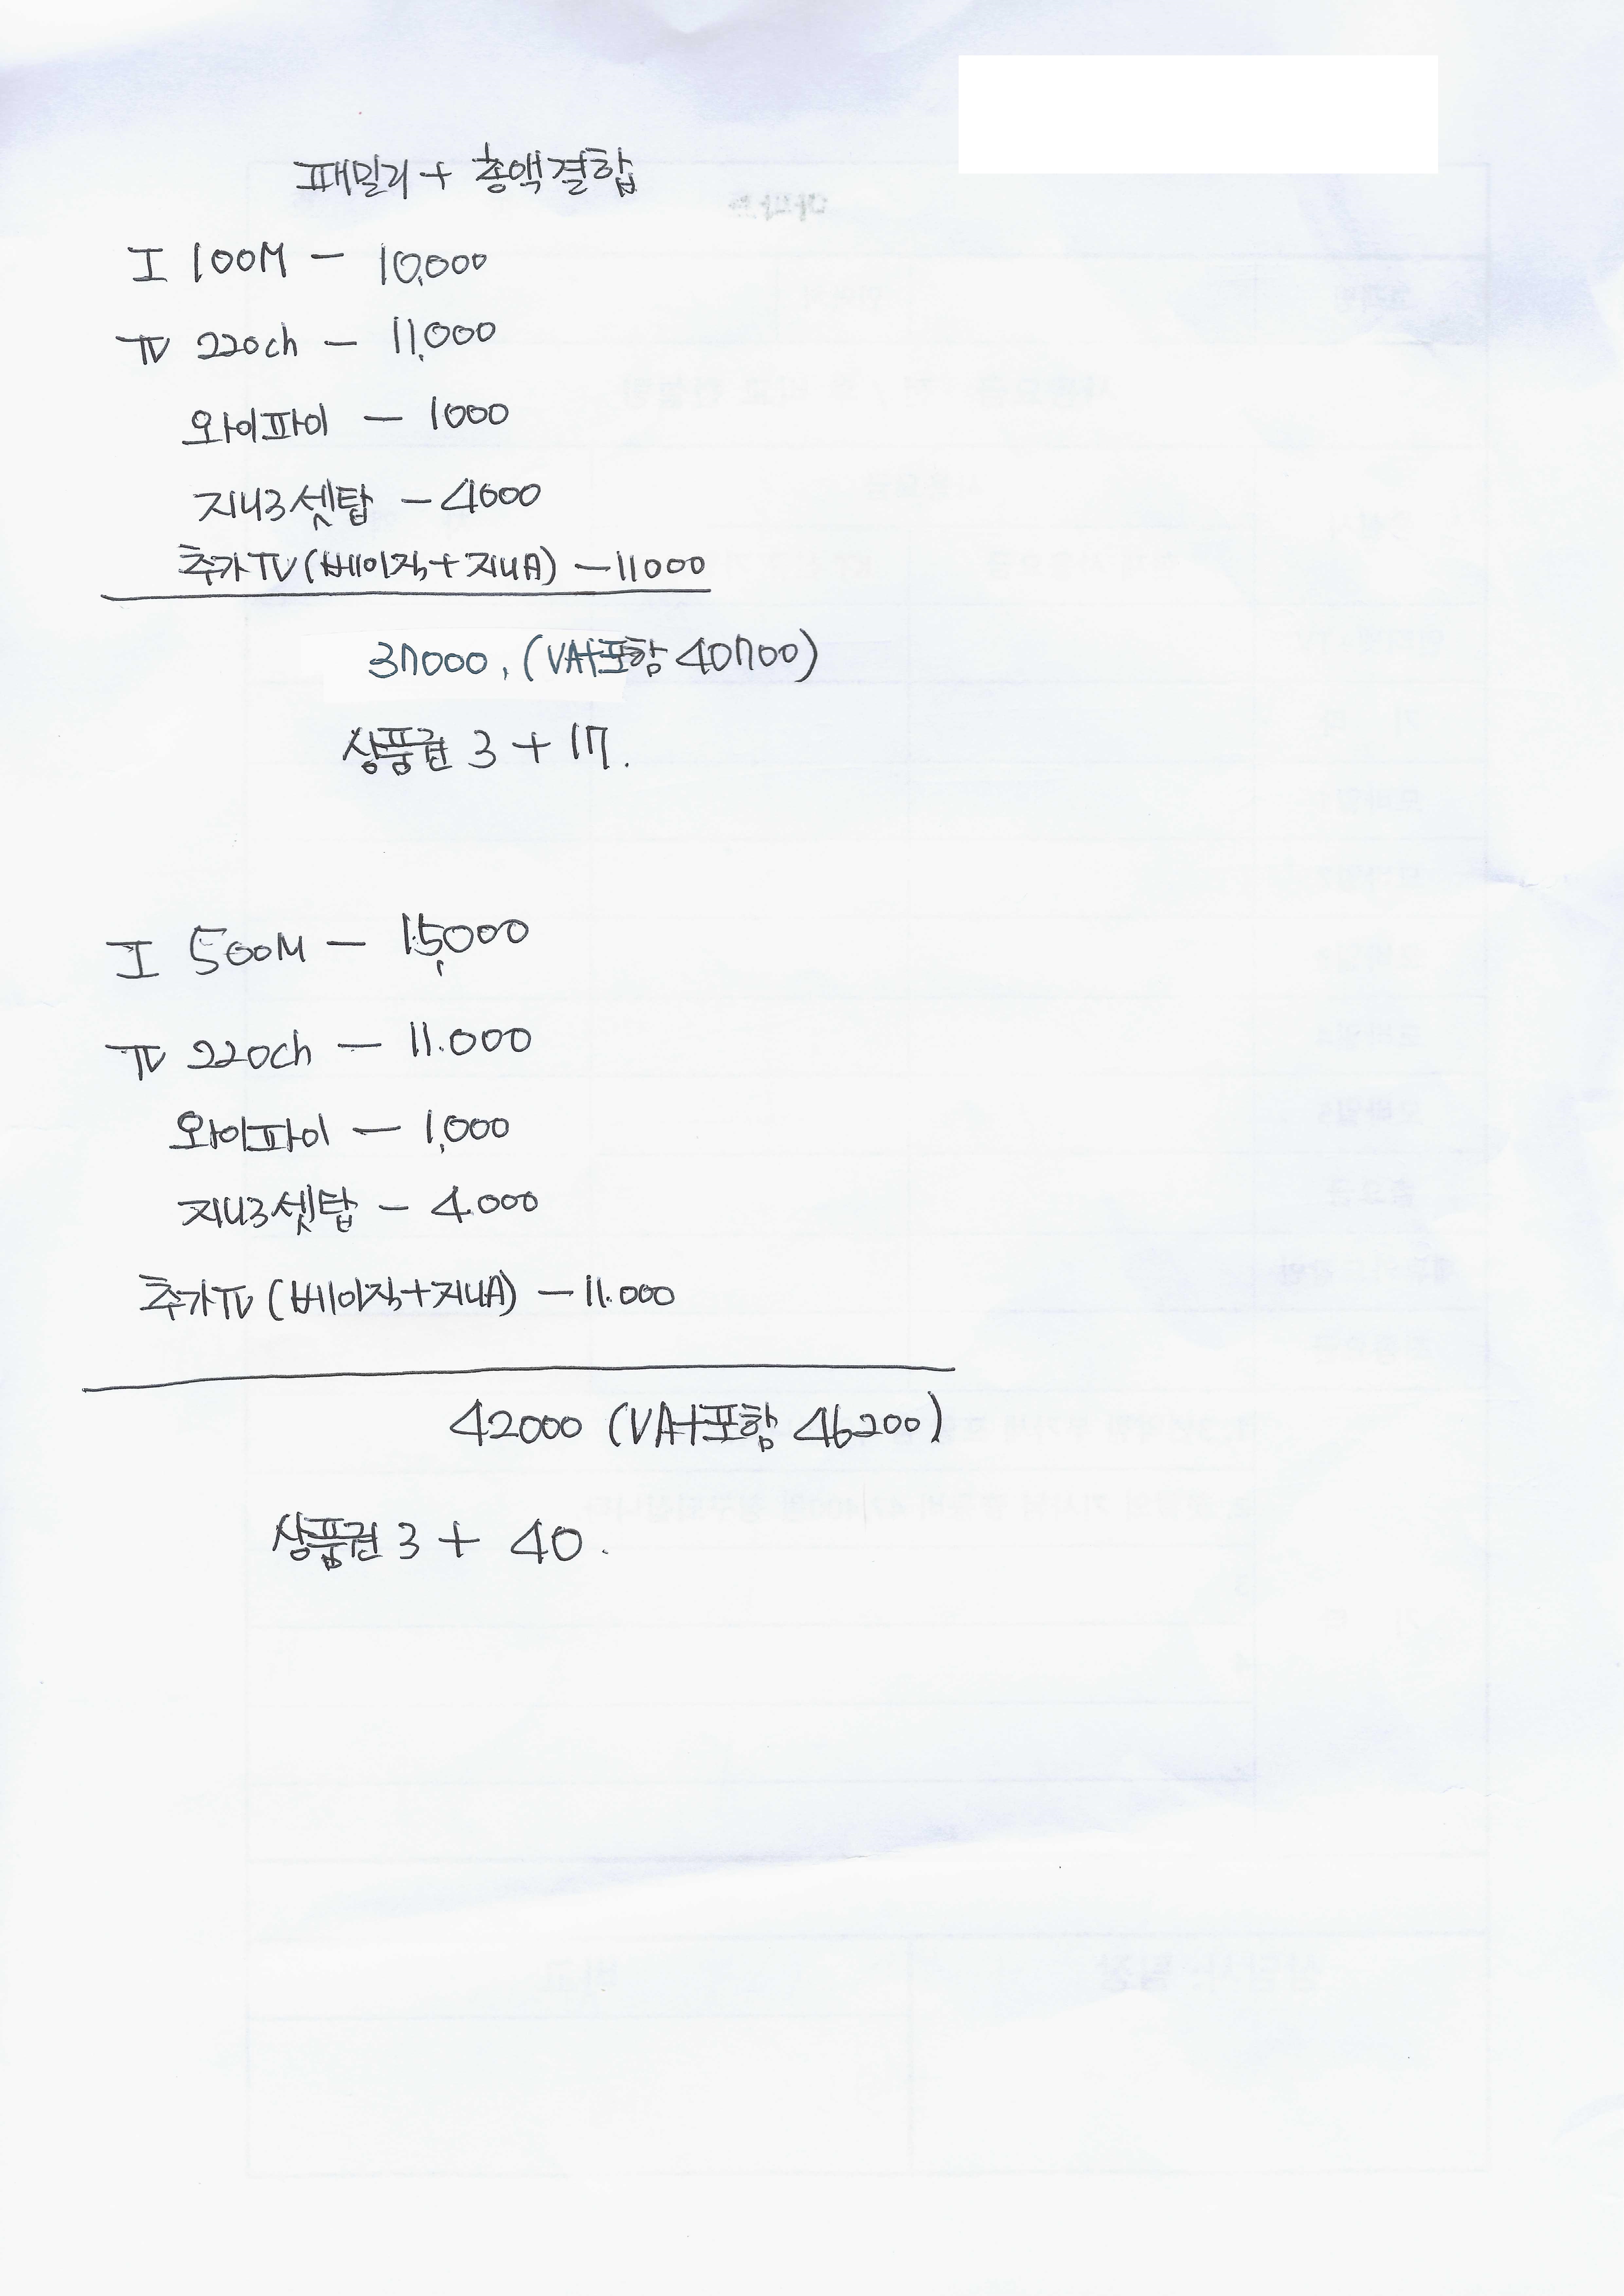 패밀리 + 총액결합
I 100M - 10,000
TV 220ch - 11,000
와이파이 - 1000
지니3셋탑 - 4000
추가TV (베이직+지니A) - 11000
37000, (VAT포함 40700)
상품권 3 + 17.
I 500M - 15,000
TV 220ch - 11.000
와이파이 - 1,000
지니3셋탑 - 4.000
추가TV (베이직+지니A) - 11.000
42000 (VAT포함 46200)
상품권 3 + 40.